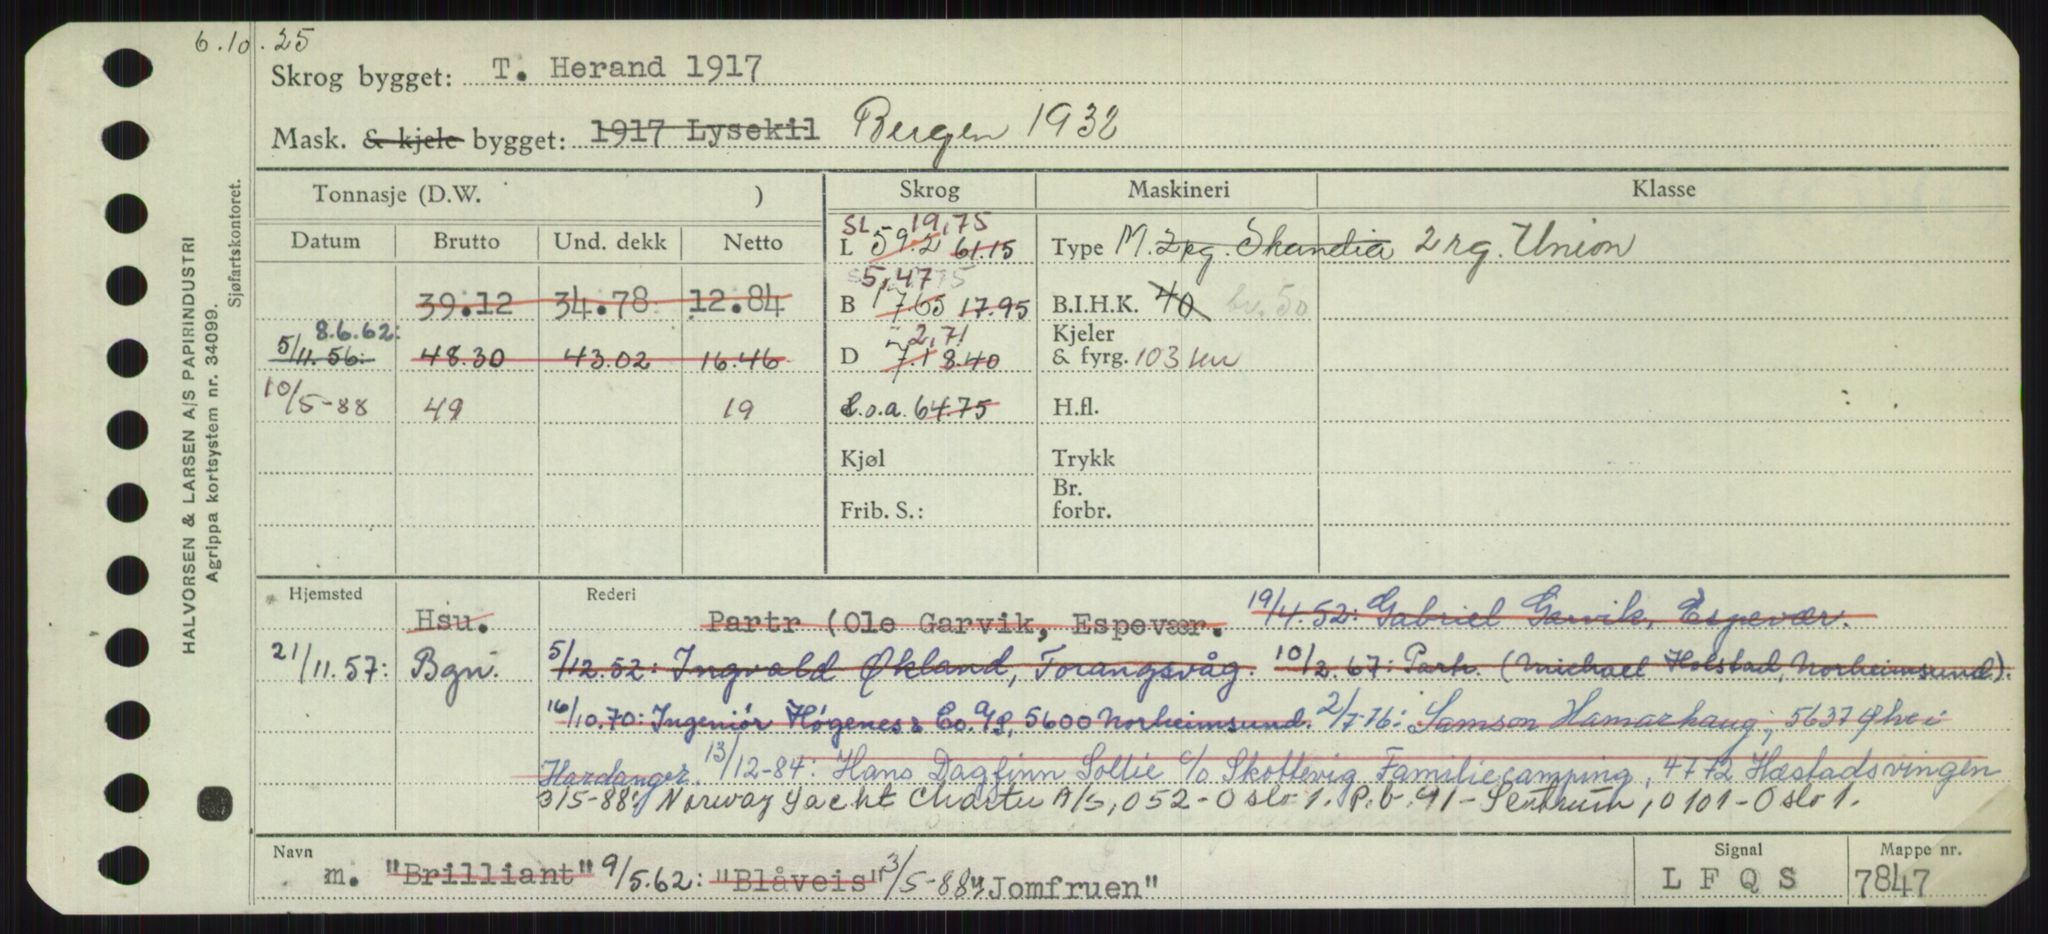 6.10.25
Skrog bygget: T. Herand 1917
Mask. & kjele bygget: 1917 Lysekil Bergen 1932
HALVORSEN & LARSEN A/S PAPIRINDUSTRI
Agrippa kortsystem nr. 34099.
Sjøfartskontoret.
Tonnasje (D.W. ) Skrog Maskineri Klasse
Datum Brutto Und. dekk Netto
SL 19,75
L 59.2 61.15 Type M. 2rg. Skandia 2 rg. Union
5,47
39.12 34.78 12.84 B 17.65 17.95 B.I.H.K. 40 br. 50
8.6.62: 2,71 Kjeler
5/11.56: 48.30 43.02 16.46 D 7.1 8.40 & fyrg. 103 kw
10/5-88 49 19 L.o.a. 64.75 H.fl.
Kjøl Trykk
Frib. S.: Br. forbr.
Hjemsted Rederi
Hsu. Partr (Ole Garvik, Espevær. 19/4.52: Gabriel Garvik, Espevær.
21/11.57: Bgn. 5/12.52: Ingvald Økland, Forangsvåg. 10/2.67: Partr. (Michael Holstad, Norheimsund).
16/10.70: Ingeniør Høgenes & Co. A/S, 5600 Norheimsund. 2/7-76: Samson Hamarhaug, 5637 Ølve i
Hardanger. 13/12-84: Hans Dagfinn Soltie c/o Skottevig Familiecamping, 4772 Hæstadsvingen
3/5-88: Norway Yacht Charter A/S, 052-Oslo 1. P.b. 91-Sentrum, 0101-Oslo 1.
Navn Signal Mappe nr.
m. "Brilliant" 9/5.62: "Blåveis" 3/5-88: "Jomfruen" L F Q S 7847